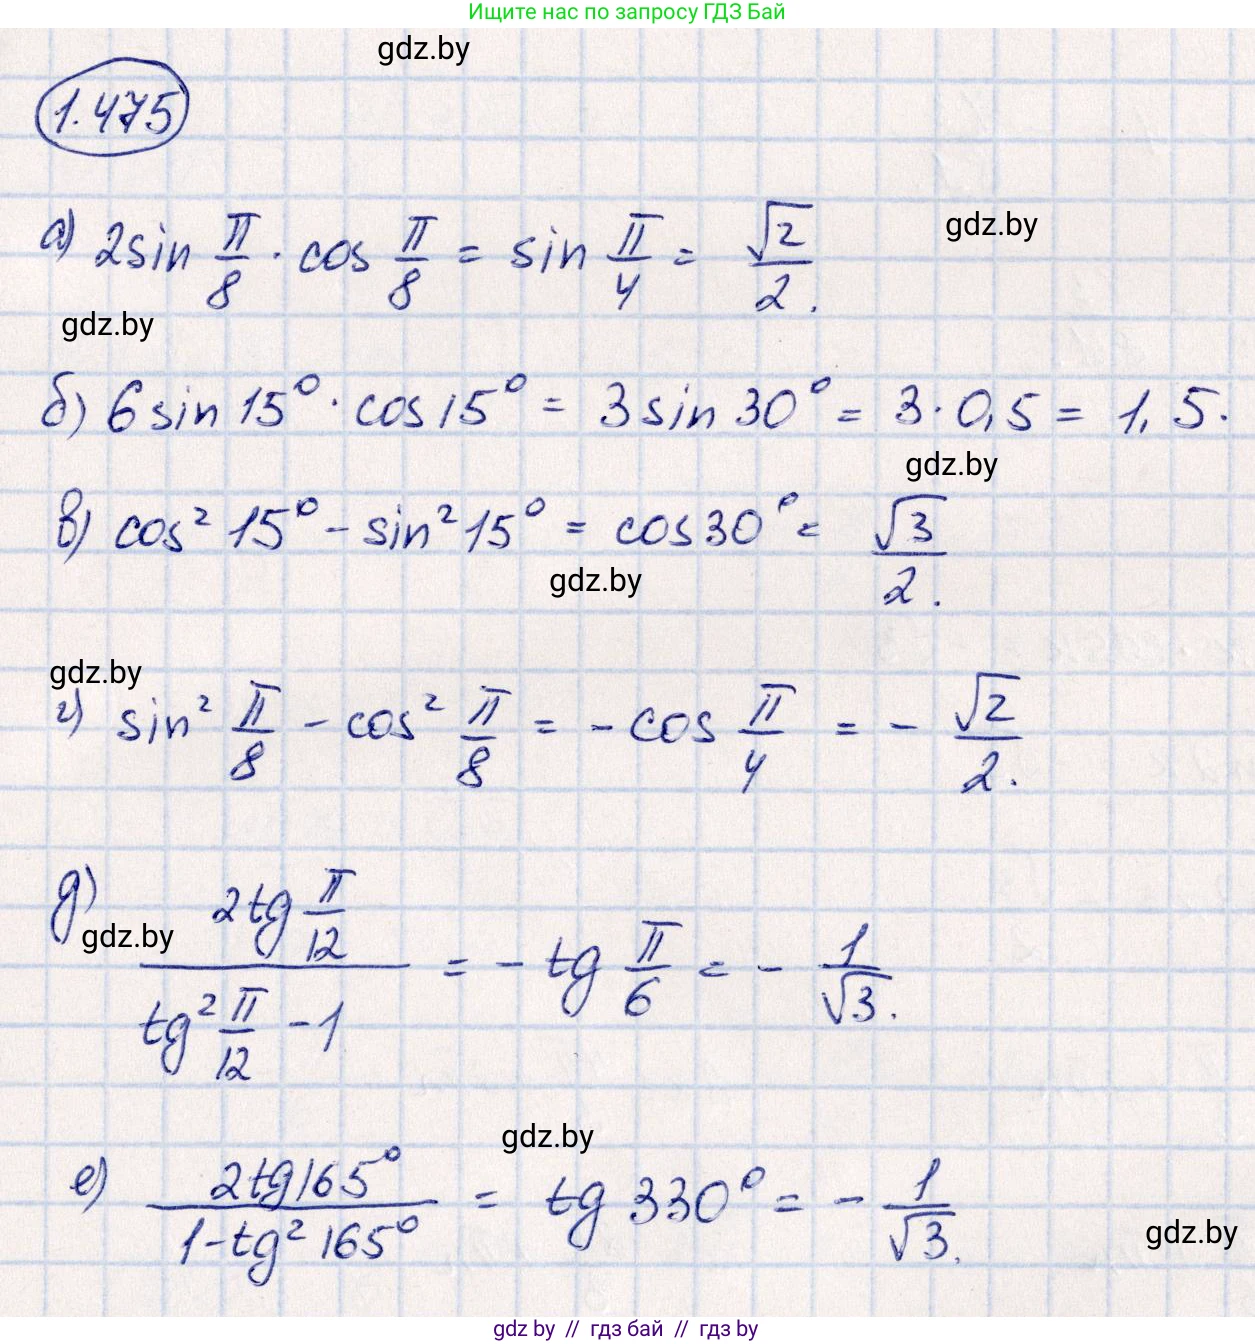 Ищите нас по запросу ГДЗ Бай
gdz.by
1.475
а) 2sin π/8 · cos π/8 = sin π/4 = √2/2.
gdz.by
gdz.by
б) 6 sin 15° · cos 15° = 3 sin 30° = 3 · 0,5 = 1,5.
gdz.by
в) cos² 15° - sin² 15° = cos 30° = √3/2.
gdz.by
gdz.by
г) sin² π/8 - cos² π/8 = - cos π/4 = - √2/2.
д) (2tg π/12)/(tg² π/12 - 1) = - tg π/6 = - 1/√3.
gdz.by
gdz.by
е) (2tg 165°)/(1 - tg² 165°) = tg 330° = - 1/√3.
gdz.by
gdz by // гдз бай // гдз by